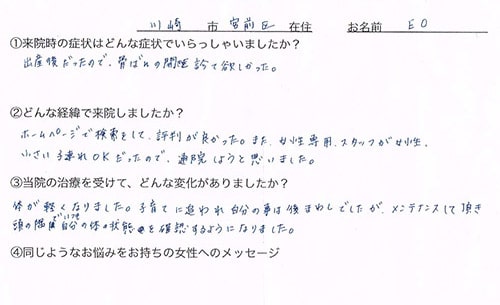 川崎 市 宮前区 在住 お名前 E O
①来院時の症状はどんな症状でいらっしゃいましたか？
出産後だったので、骨ばんの開き診て欲しかった。
②どんな経緯で来院しましたか？
ホームページで検索をして、評判が良かった。また、女性専用、スタッフが女性、
小さい子連れOKだったので、通院しようと思いました。
③当院の治療を受けて、どんな変化がありましたか？
体が軽くなりました。子育てに追われ自分の事は後まわしでしたが、メンテナンスして頂き
頭の隅でいつも自分の体の状態を確認するようになりました。
④同じようなお悩みをお持ちの女性へのメッセージ